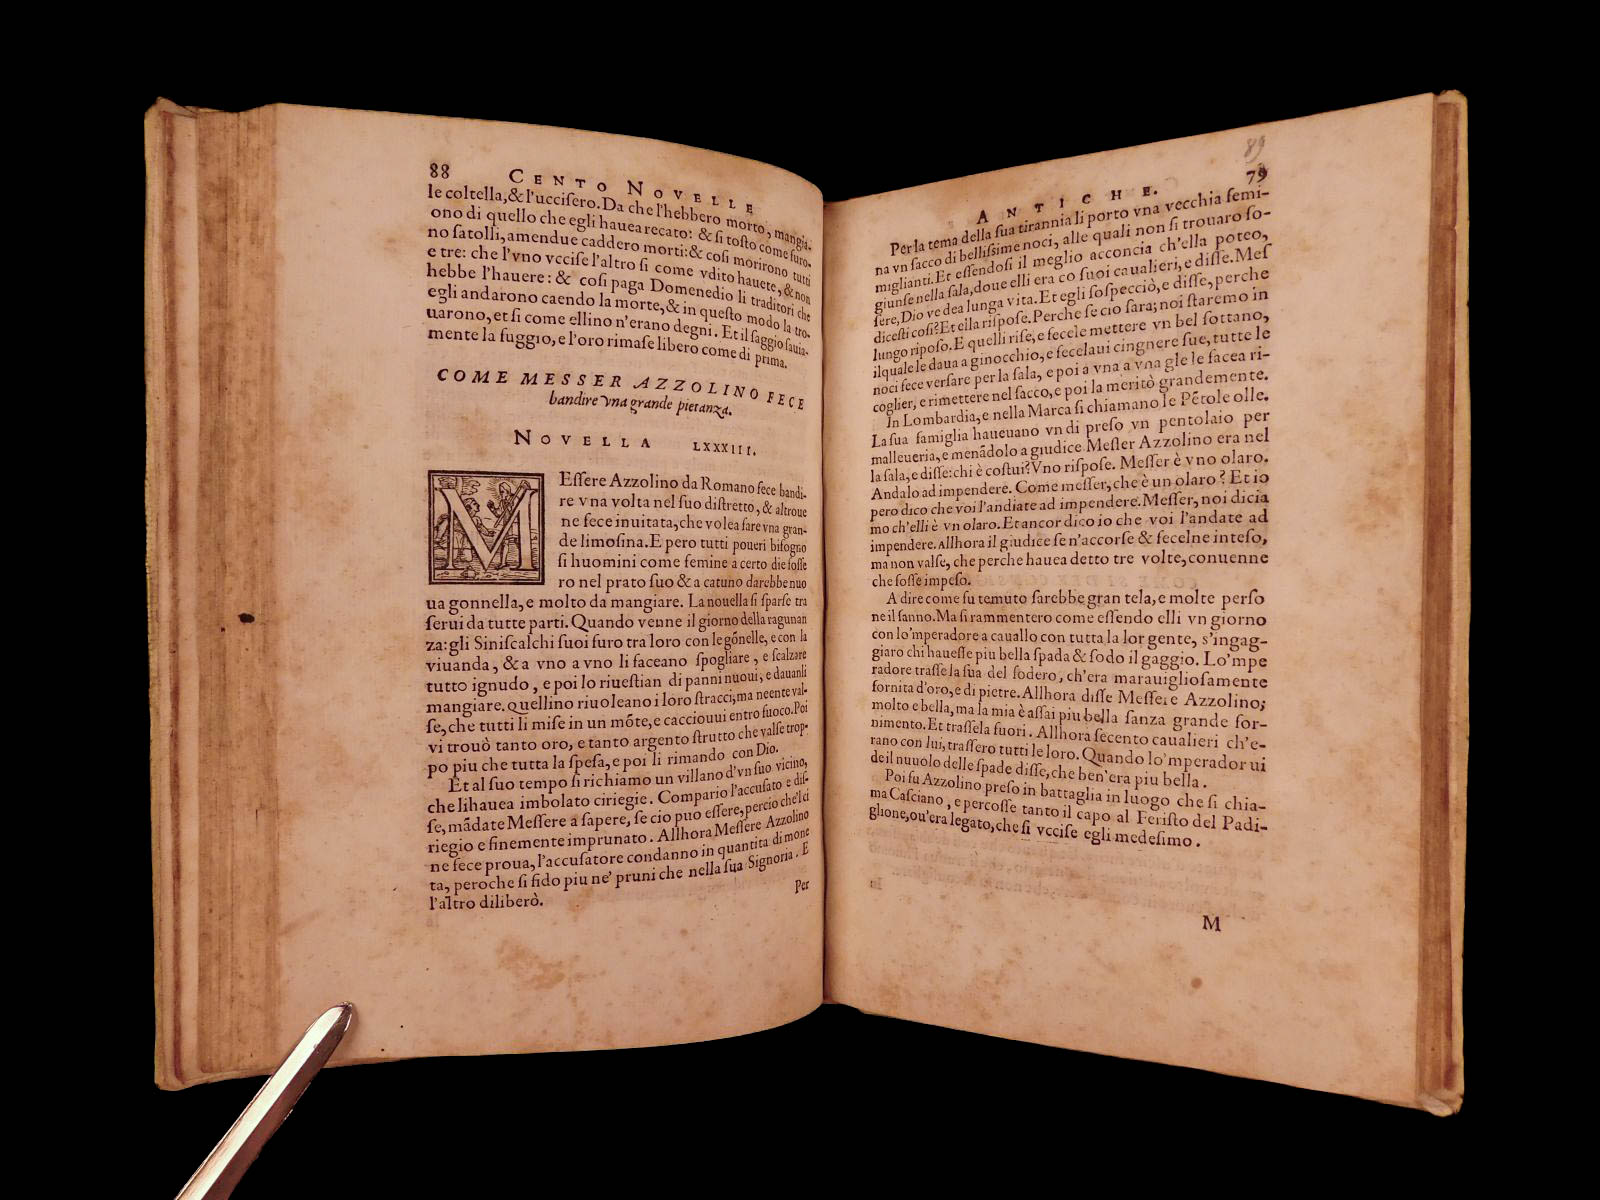 88
CENTO NOVELLE
le coltella,& l'uccisero. Da che l'hebbero morto, mangia-
ono di quello che egli hauea recato: & si tosto come furo-
no satolli, amendue caddero morti: & cosi morirono tutti
e tre: che l'vno vccise l'altro si come vdito hauete, & non
hebbe l'hauere: & cosi paga Domenedio li traditori che
egli andarono caendo la morte, & in questo modo la tro-
uarono, et si come ellino n'erano degni. Et il saggio sauia-
mente la fuggio, e l'oro rimase libero come di prima.
COME MESSER AZZOLINO FECE
bandire vna grande pietanza.
NOVELLA LXXXIII.
MEssere Azzolino da Romano fece bandi-
re vna volta nel suo distretto, & altroue
ne fece inuitata, che volea fare vna gran-
de limosina. E pero tutti poueri bisogno
si huomini come femine a certo die fosse
ro nel prato suo & a catuno darebbe nuo
ua gonnella, e molto da mangiare. La nouella si sparse tra
serui da tutte parti. Quando venne il giorno della ragunan
za: gli Siniscalchi suoi furo tra loro con le gõnelle, e con la
viuanda, & a vno a vno li faceano spogliare, e scalzare
tutto ignudo, e poi lo riuestian di panni nuoui, e dauanli
mangiare. Quellino riuoleano i loro stracci; ma neente val-
se, che tutti li mise in un mõte, e cacciouui entro fuoco. Poi
vi trouò tanto oro, e tanto argento strutto che valse trop-
po piu che tutta la spesa, e poi li rimando con Dio.
Et al suo tempo si richiamo un villano d'vn suo vicino,
che li hauea imbolato ciriegie. Compario l'accusato e dis-
se, mãdate Messere a sapere, se cio puo essere, percio che'l ci
riegio e finemente imprunato. Allhora Messere Azzolino
ne fece proua, l'accusatore condanno in quantita di mone
ta, peroche si fido piu ne' pruni che nella sua Signoria. E
l'altro diliberò.
Per
89
79
ANTICHE.
Per la tema della sua tirannia li porto vna vecchia femi-
na vn sacco di bellissime noci, alle quali non si trouaro so-
miglianti. Et essendosi il meglio acconcia ch'ella poteo,
giunse nella sala, doue elli era co suoi caualieri, e disse. Mes
sere, Dio ve dea lunga vita. Et egli sospecciò, e disse, perche
dicesti cosi? Et ella rispose. Perche se cio sara; noi staremo in
lungo riposo. E quelli rise, e fecele mettere vn bel sottano,
ilquale le daua a ginocchio, e fecelaui cingnere sue, tutte le
noci fece versare per la sala, e poi a vna a vna gle le facea ri-
coglier, e rimettere nel sacco, e poi la meritò grandemente.
In Lombardia, e nella Marca si chiamano le Pẽtole olle.
La sua famiglia haueuano vn di preso vn pentolaio per
malleueria, e menãdolo a giudice Messer Azzolino era nel
la sala, e disse: chi è costui? Vno rispose. Messer è vno olaro.
Andalo ad impendere. Come messer, che è un olaro? Et io
pero dico che voi l'andiate ad impendere. Messer, noi dicia
mo ch'elli è vn olaro. Et ancor dico io che voi l'andate ad
impendere. Allhora il giudice se n'accorse & fecelne inteso,
ma non valse, che perche hauea detto tre volte, conuenne
che fosse impeso.
A dire come fu temuto sarebbe gran tela, e molte perso
ne il sanno. Ma si rammentero come essendo elli vn giorno
con lo'mperadore a cauallo con tutta la lor gente, s'ingag-
giaro chi hauesse piu bella spada & sodo il gaggio. Lo'mpe
radore trasse la sua del fodero, ch'era marauigliosamente
fornita d'oro, e di pietre. Allhora disse Messere Azzolino;
molto e bella, ma la mia è assai piu bella sanza grande for-
nimento. Et trassela fuori. Allhora secento caualieri ch'e-
rano con lui, trassero tutti le loro. Quando lo'mperador ui
de il nuuolo delle spade disse, che ben'era piu bella.
Poi fu Azzolino preso in battaglia in luogo che si chia-
ma Casciano, e percosse tanto il capo al Feristo del Padi-
glione, ou'era legato, che si vccise egli medesimo.
M